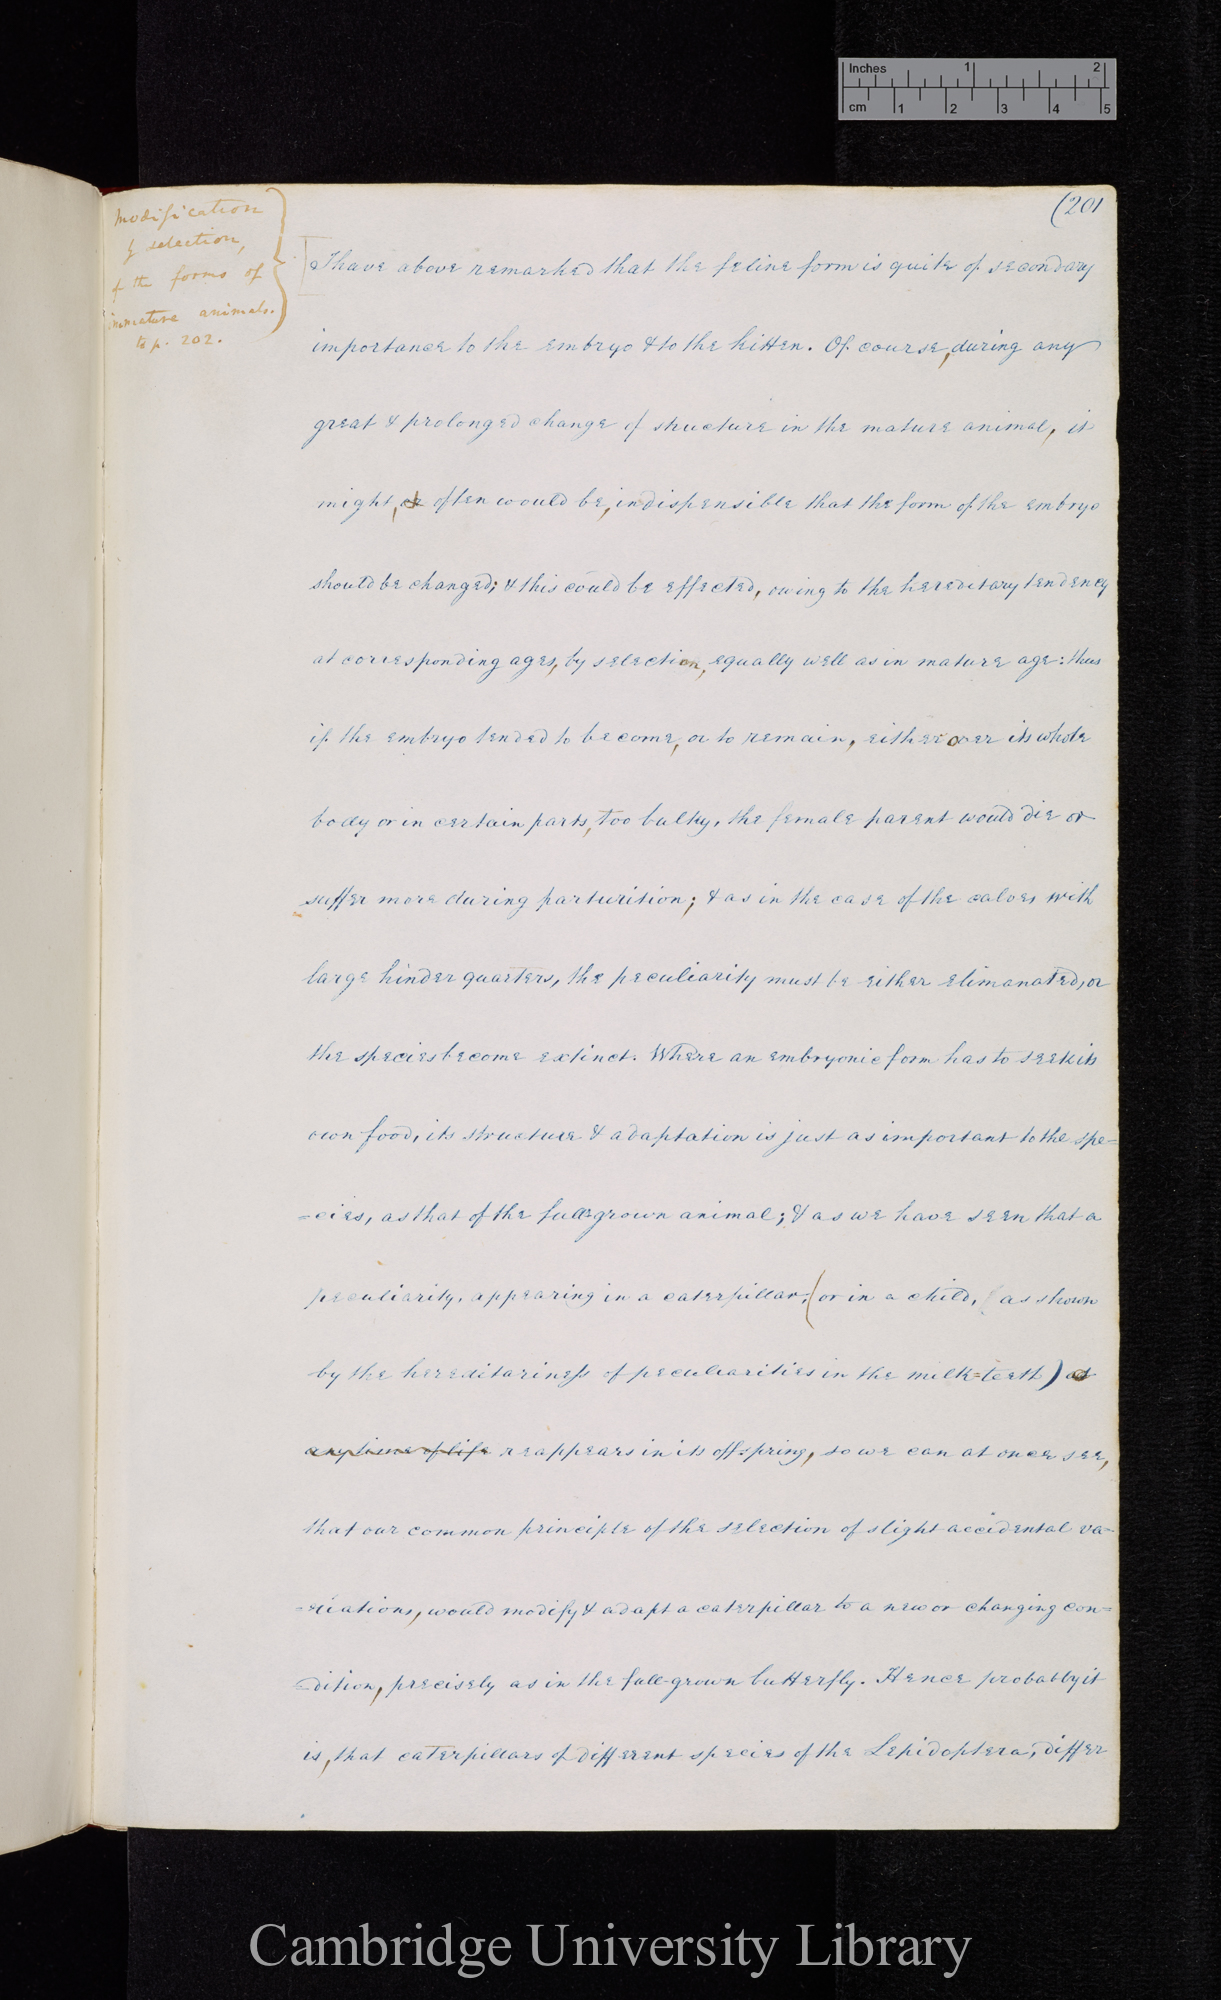 Inches 1 2
cm 1 2 3 4 5
(201
Modification
by selection,
of the forms of
immature animals.
to p. 202.
I have above remarked that the feline form is quite of secondary
importance to the embryo & to the kitten. Of course, during any
great & prolonged change of structure in the mature animal, it
might, & often would be, indispensible that the form of the embryo
should be changed; & this could be effected, owing to the hereditary tendency
at corresponding ages, by selection, equally well as in mature age: thus
if the embryo tended to become, or to remain, either over its whole
body or in certain parts, too bulky, the female parent would die or
suffer more during parturition; & as in the case of the calves with
large hinder quarters, the peculiarity must be either elimanated, or
the species become extinct. Where an embryonic form has to seek its
own food, its structure & adaptation is just as important to the spe=
=cies, as that of the full-grown animal; & as we have seen that a
peculiarity, appearing in a caterpillar, (or in a child, as shown
by the hereditariness of peculiarities in the milk=teeth) at
any time of life reappears in its off-spring, so we can at once see,
that our common principle of the selection of slight accidental va=
=riations, would modify & adapt a caterpillar to a new or changing con=
=dition, precisely as in the full-grown butterfly. Hence probably it
is, that caterpillars of different species of the Lepidoptera, differ
Cambridge University Library